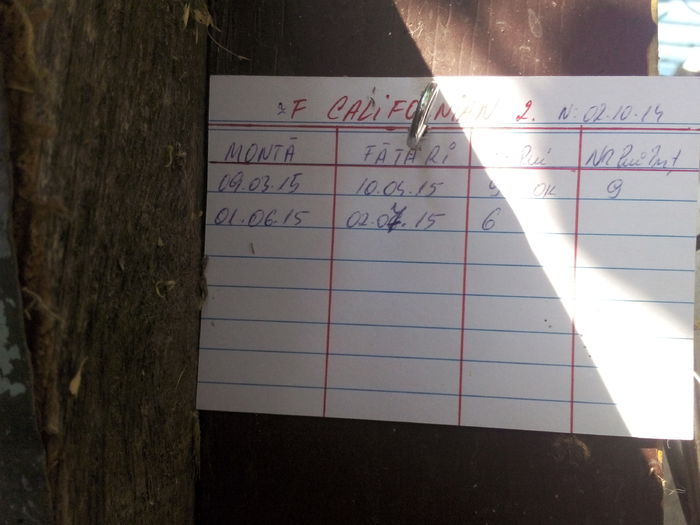 F CALIFORNIAN 2. N: 02.10.14
MONTĂ FĂTĂRI Pui NR Pui
09.03.15 10.04.15 9 OK 9
01.06.15 02.07.15 6